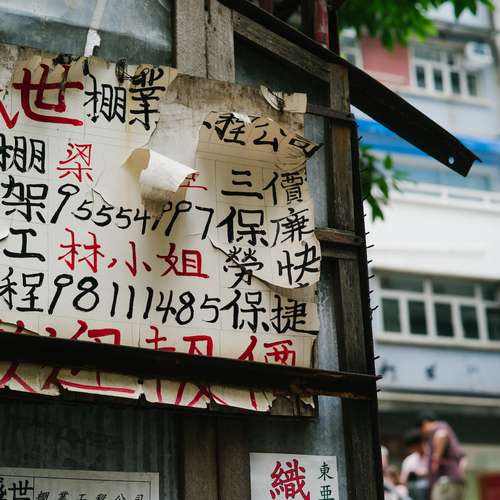 世棚業工程公司
棚架工程
梁生
95554997
林小姐
98111485
三保勞保
價廉快捷
歡迎報價
世棚業工程公司
織
東亞